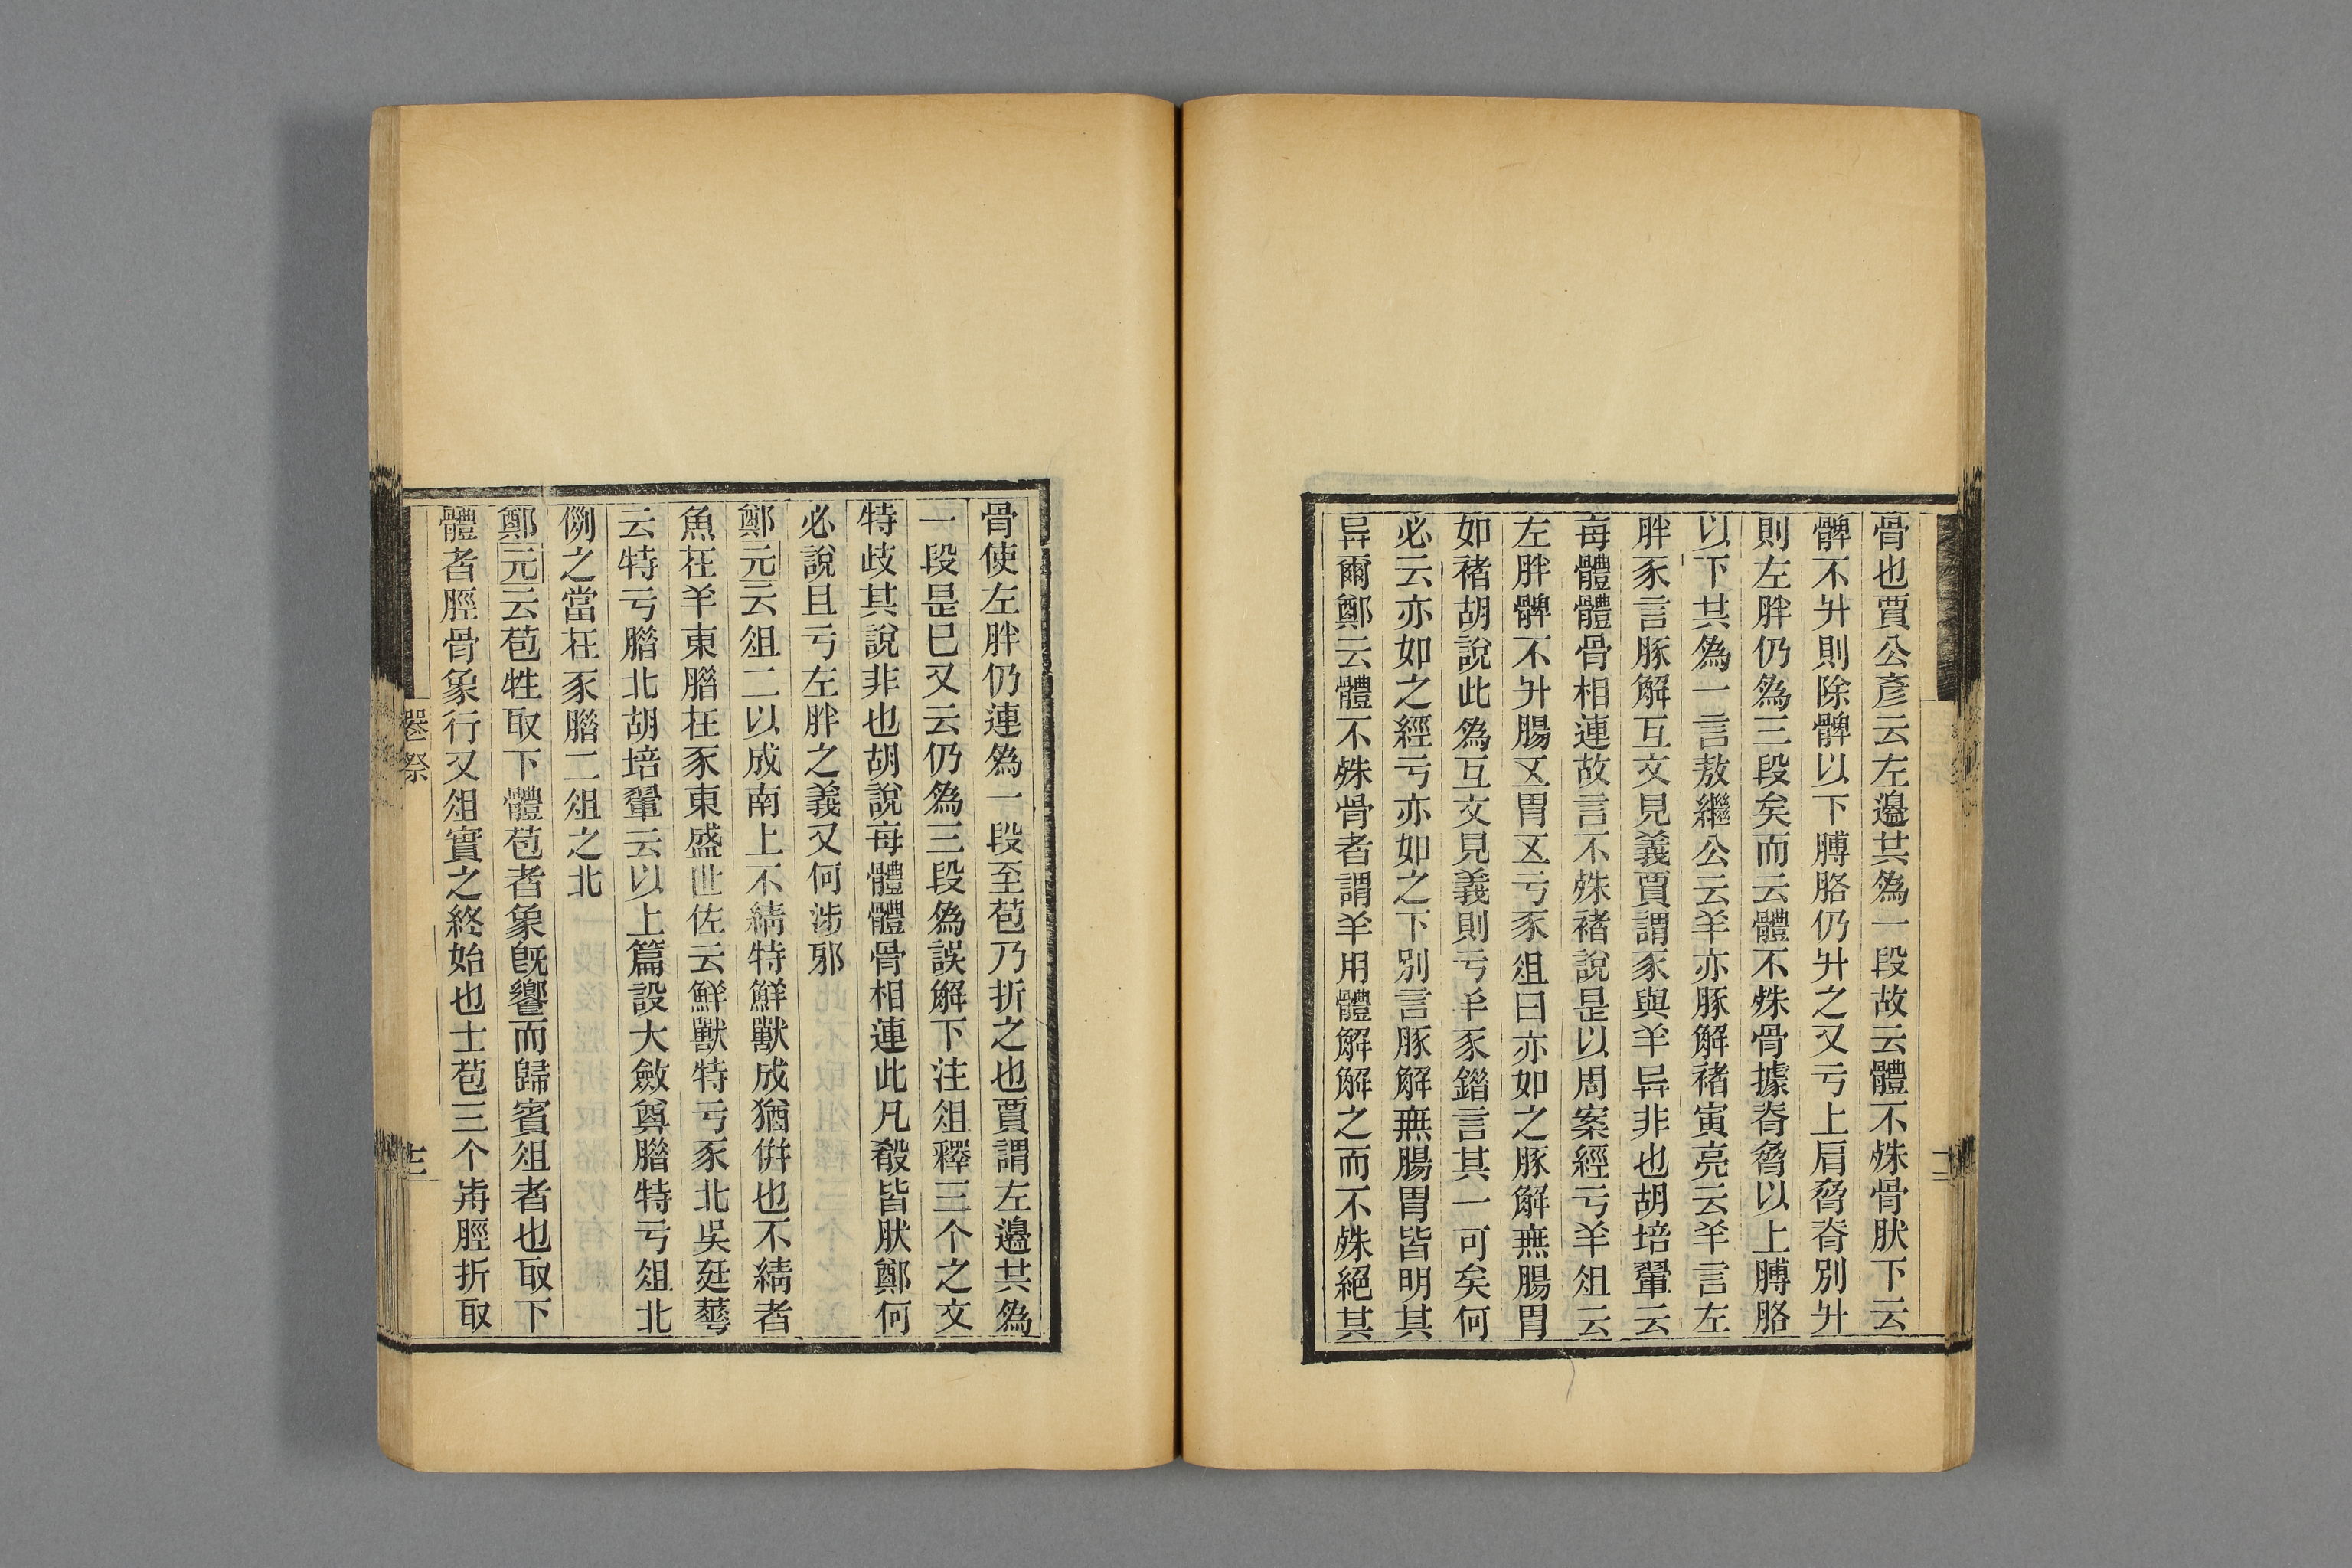 骨也賈公彥云左邉其爲一段故云體不殊骨肰下云
髀不升則除髀以下膊胳仍升之又亏上肩脅脊別升
則左胖仍爲三段矣而云體不殊骨據脊脅以上膊胳
以下其爲一言敖繼公云羊亦豚解褚寅亮云羊言左
胖豕言豚解互文見義賈謂豕與羊异非也胡培翬云
每體體骨相連故言不殊褚說是以周案經亏羊俎云
左胖髀不升腸五胃五亏豕俎曰亦如之豚解無腸胃
如褚胡說此爲互文見義則亏羊豕錯言其一可矣何
必云亦如之經亏亦如之下別言豚解無腸胃皆明其
异爾鄭云體不殊骨者謂羊用體解解之而不殊絕其
骨使左胖仍連爲一段至苞乃折之也賈謂左邉其爲
一段是巳又云仍爲三段爲誤解下注俎釋三个之文
特歧其說非也胡說每體體骨相連此凡殽皆肰鄭何
必說且亏左胖之義又何涉邪
鄭元云俎二以成南上不綪特鮮獸成猶併也不綪者
魚在羊東腊在豕東盛世佐云鮮獸特亏豕北吳廷華
云特亏腊北胡培翬云以上篇設大斂奠腊特亏俎北
例之當在豕腊二俎之北
鄭元云苞牲取下體苞者象旣饗而歸賓俎者也取下
體者脛骨象行又俎實之終始也士苞三个歬脛折取
卷祭
十三